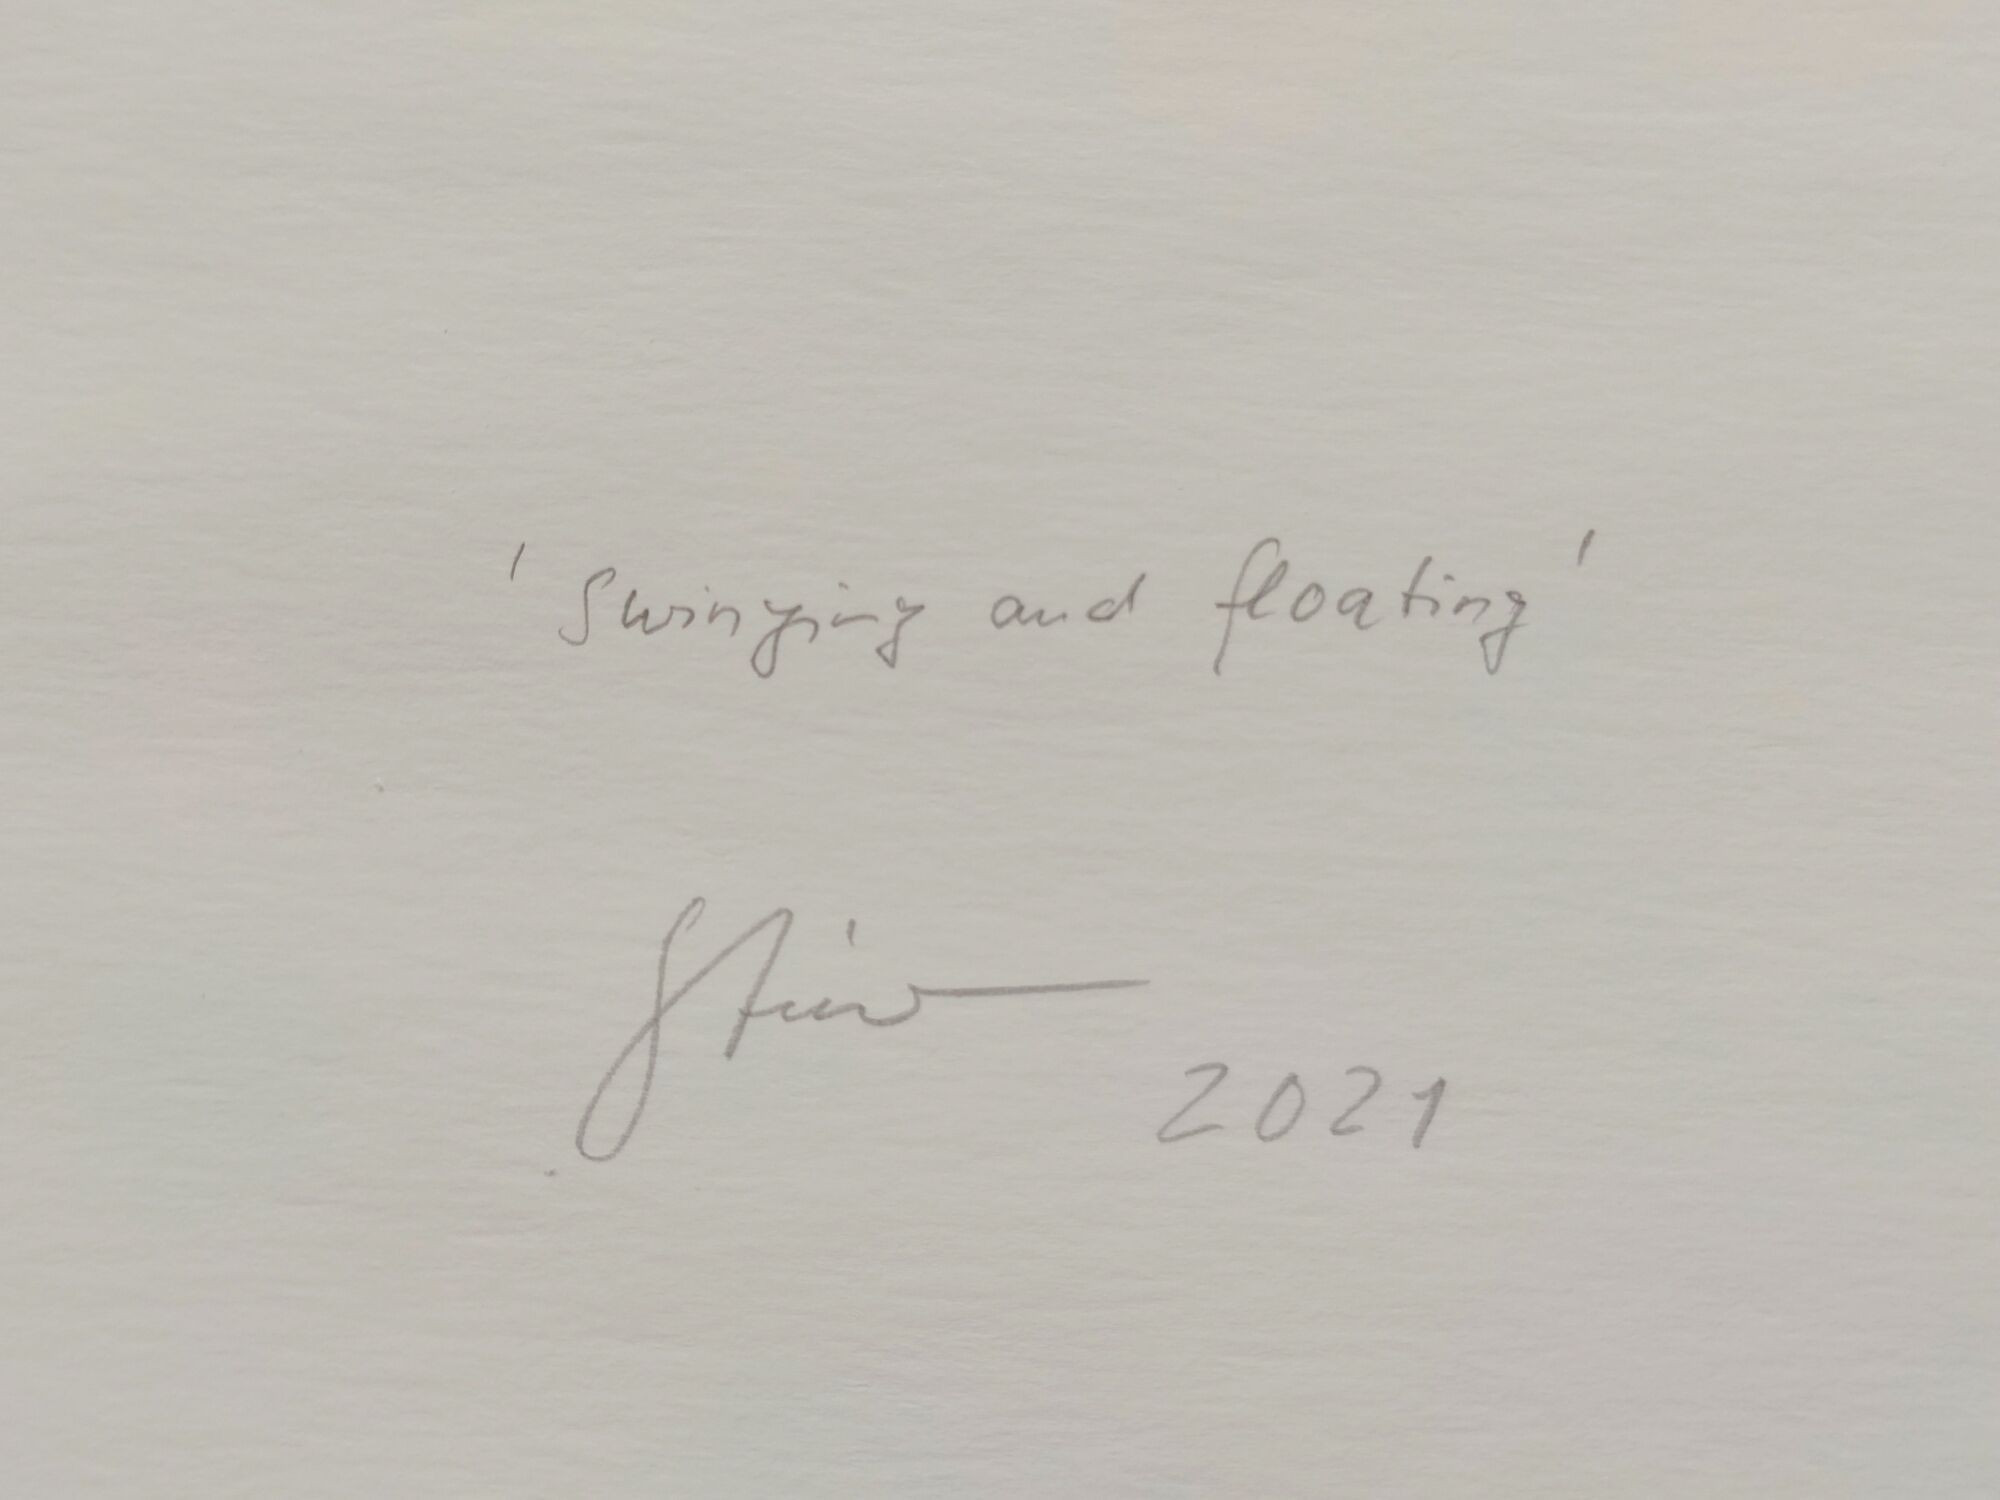 'Swinging and floating'
2021